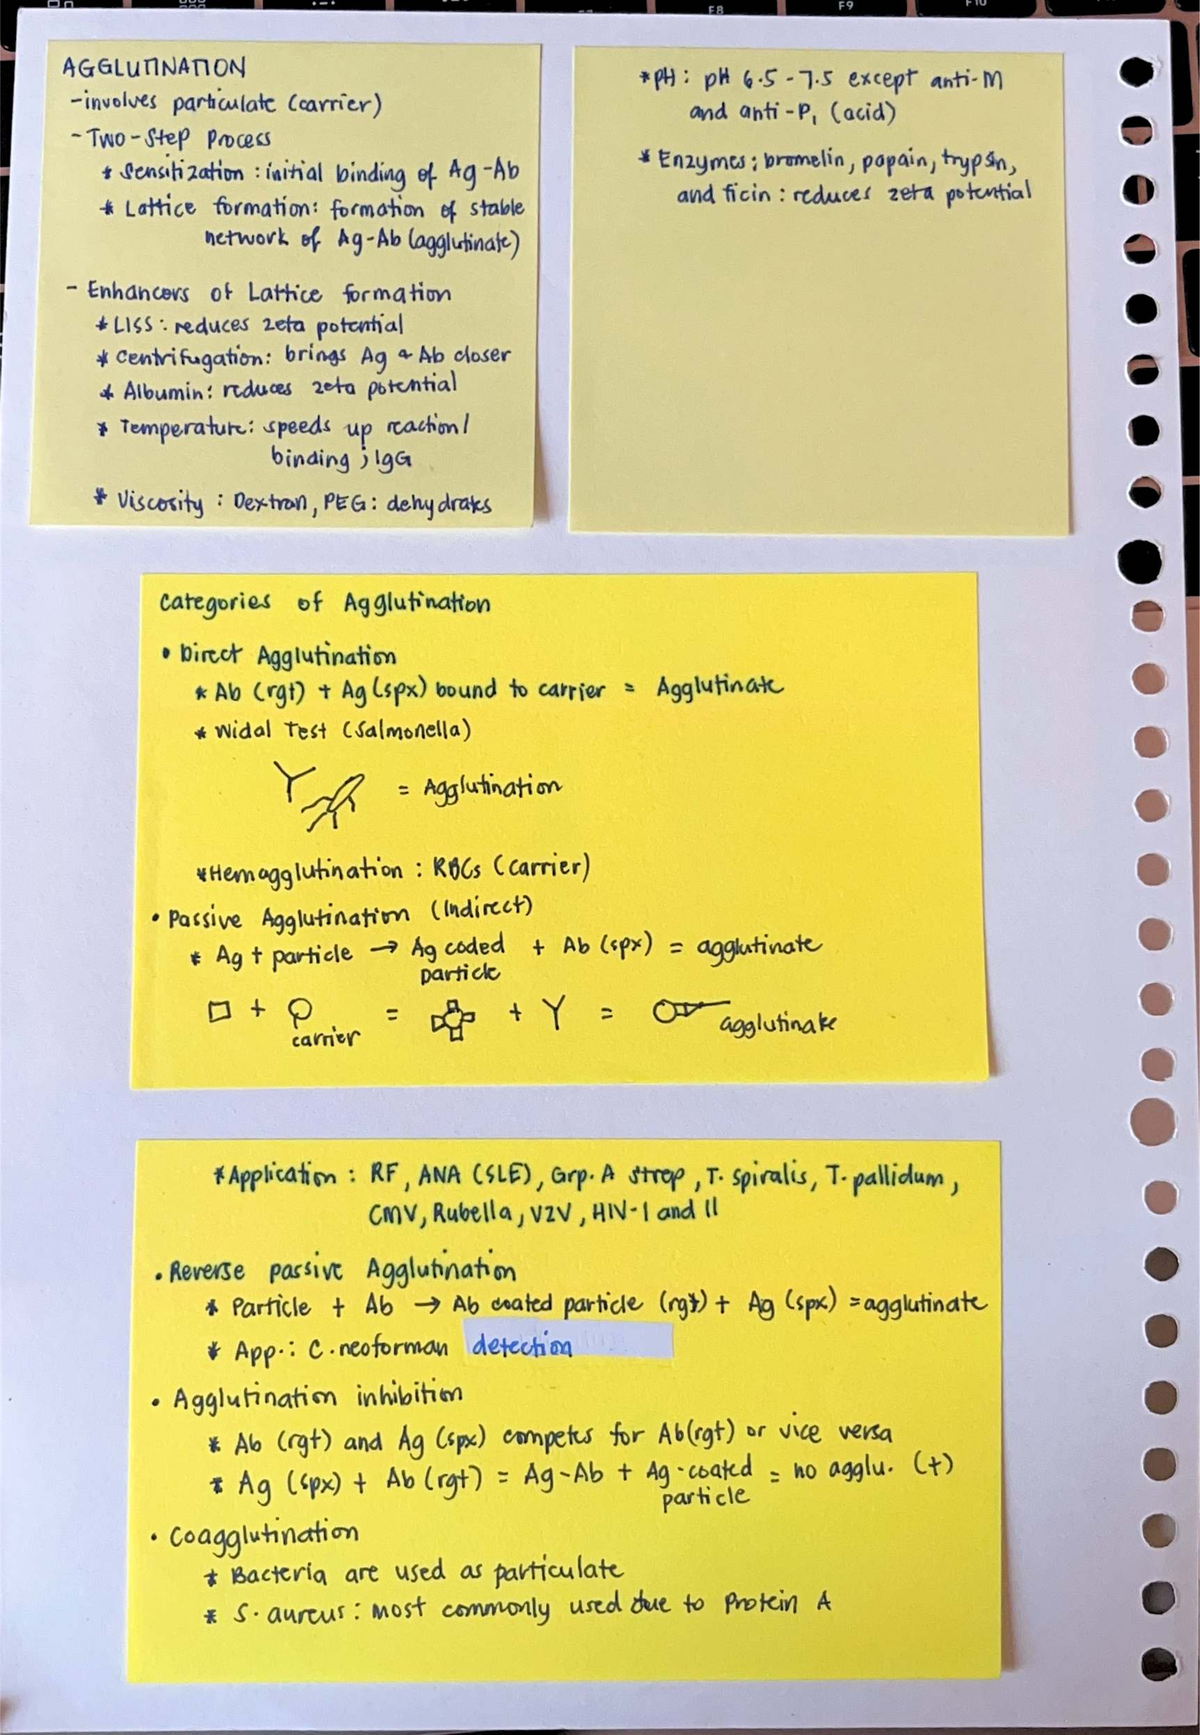 F8 F9 F10
AGGLUTINATION
-involves particulate (carrier)
- Two-Step Process
* Sensitization : initial binding of Ag-Ab
* Lattice formation: formation of stable
network of Ag-Ab (agglutinate)
- Enhancers of Lattice formation
* LISS : reduces zeta potential
* Centrifugation: brings Ag & Ab closer
* Albumin: reduces zeta potential
* Temperature: speeds up reaction/
binding ; IgG
* Viscosity : Dextran, PEG: dehydrates
*pH: pH 6.5-7.5 except anti-M
and anti-P₁ (acid)
* Enzymes; bromelin, papain, trypsin,
and ficin : reduces zeta potential
Categories of Agglutination
• Direct Agglutination
* Ab (rgt) + Ag (spx) bound to carrier = Agglutinate
* Widal Test (Salmonella)
= Agglutination
*Hemagglutination : RBCs (carrier)
• Passive Agglutination (Indirect)
* Ag + particle → Ag coded + Ab (spx) = agglutinate
particle
+ = + Y =
carrier agglutinate
*Application : RF, ANA (SLE), Grp. A strep, T. spiralis, T. pallidum,
CMV, Rubella, VZV, HIV-I and II
• Reverse passive Agglutination
* Particle + Ab → Ab coated particle (rgt) + Ag (spx) = agglutinate
* App.: C. neoforman detection
• Agglutination inhibition
* Ab (rgt) and Ag (spx) competes for Ab(rgt) or vice versa
* Ag (spx) + Ab (rgt) = Ag-Ab + Ag-coated = no agglu. (+)
particle
• Coagglutination
* Bacteria are used as particulate
* S. aureus: most commonly used due to Protein A